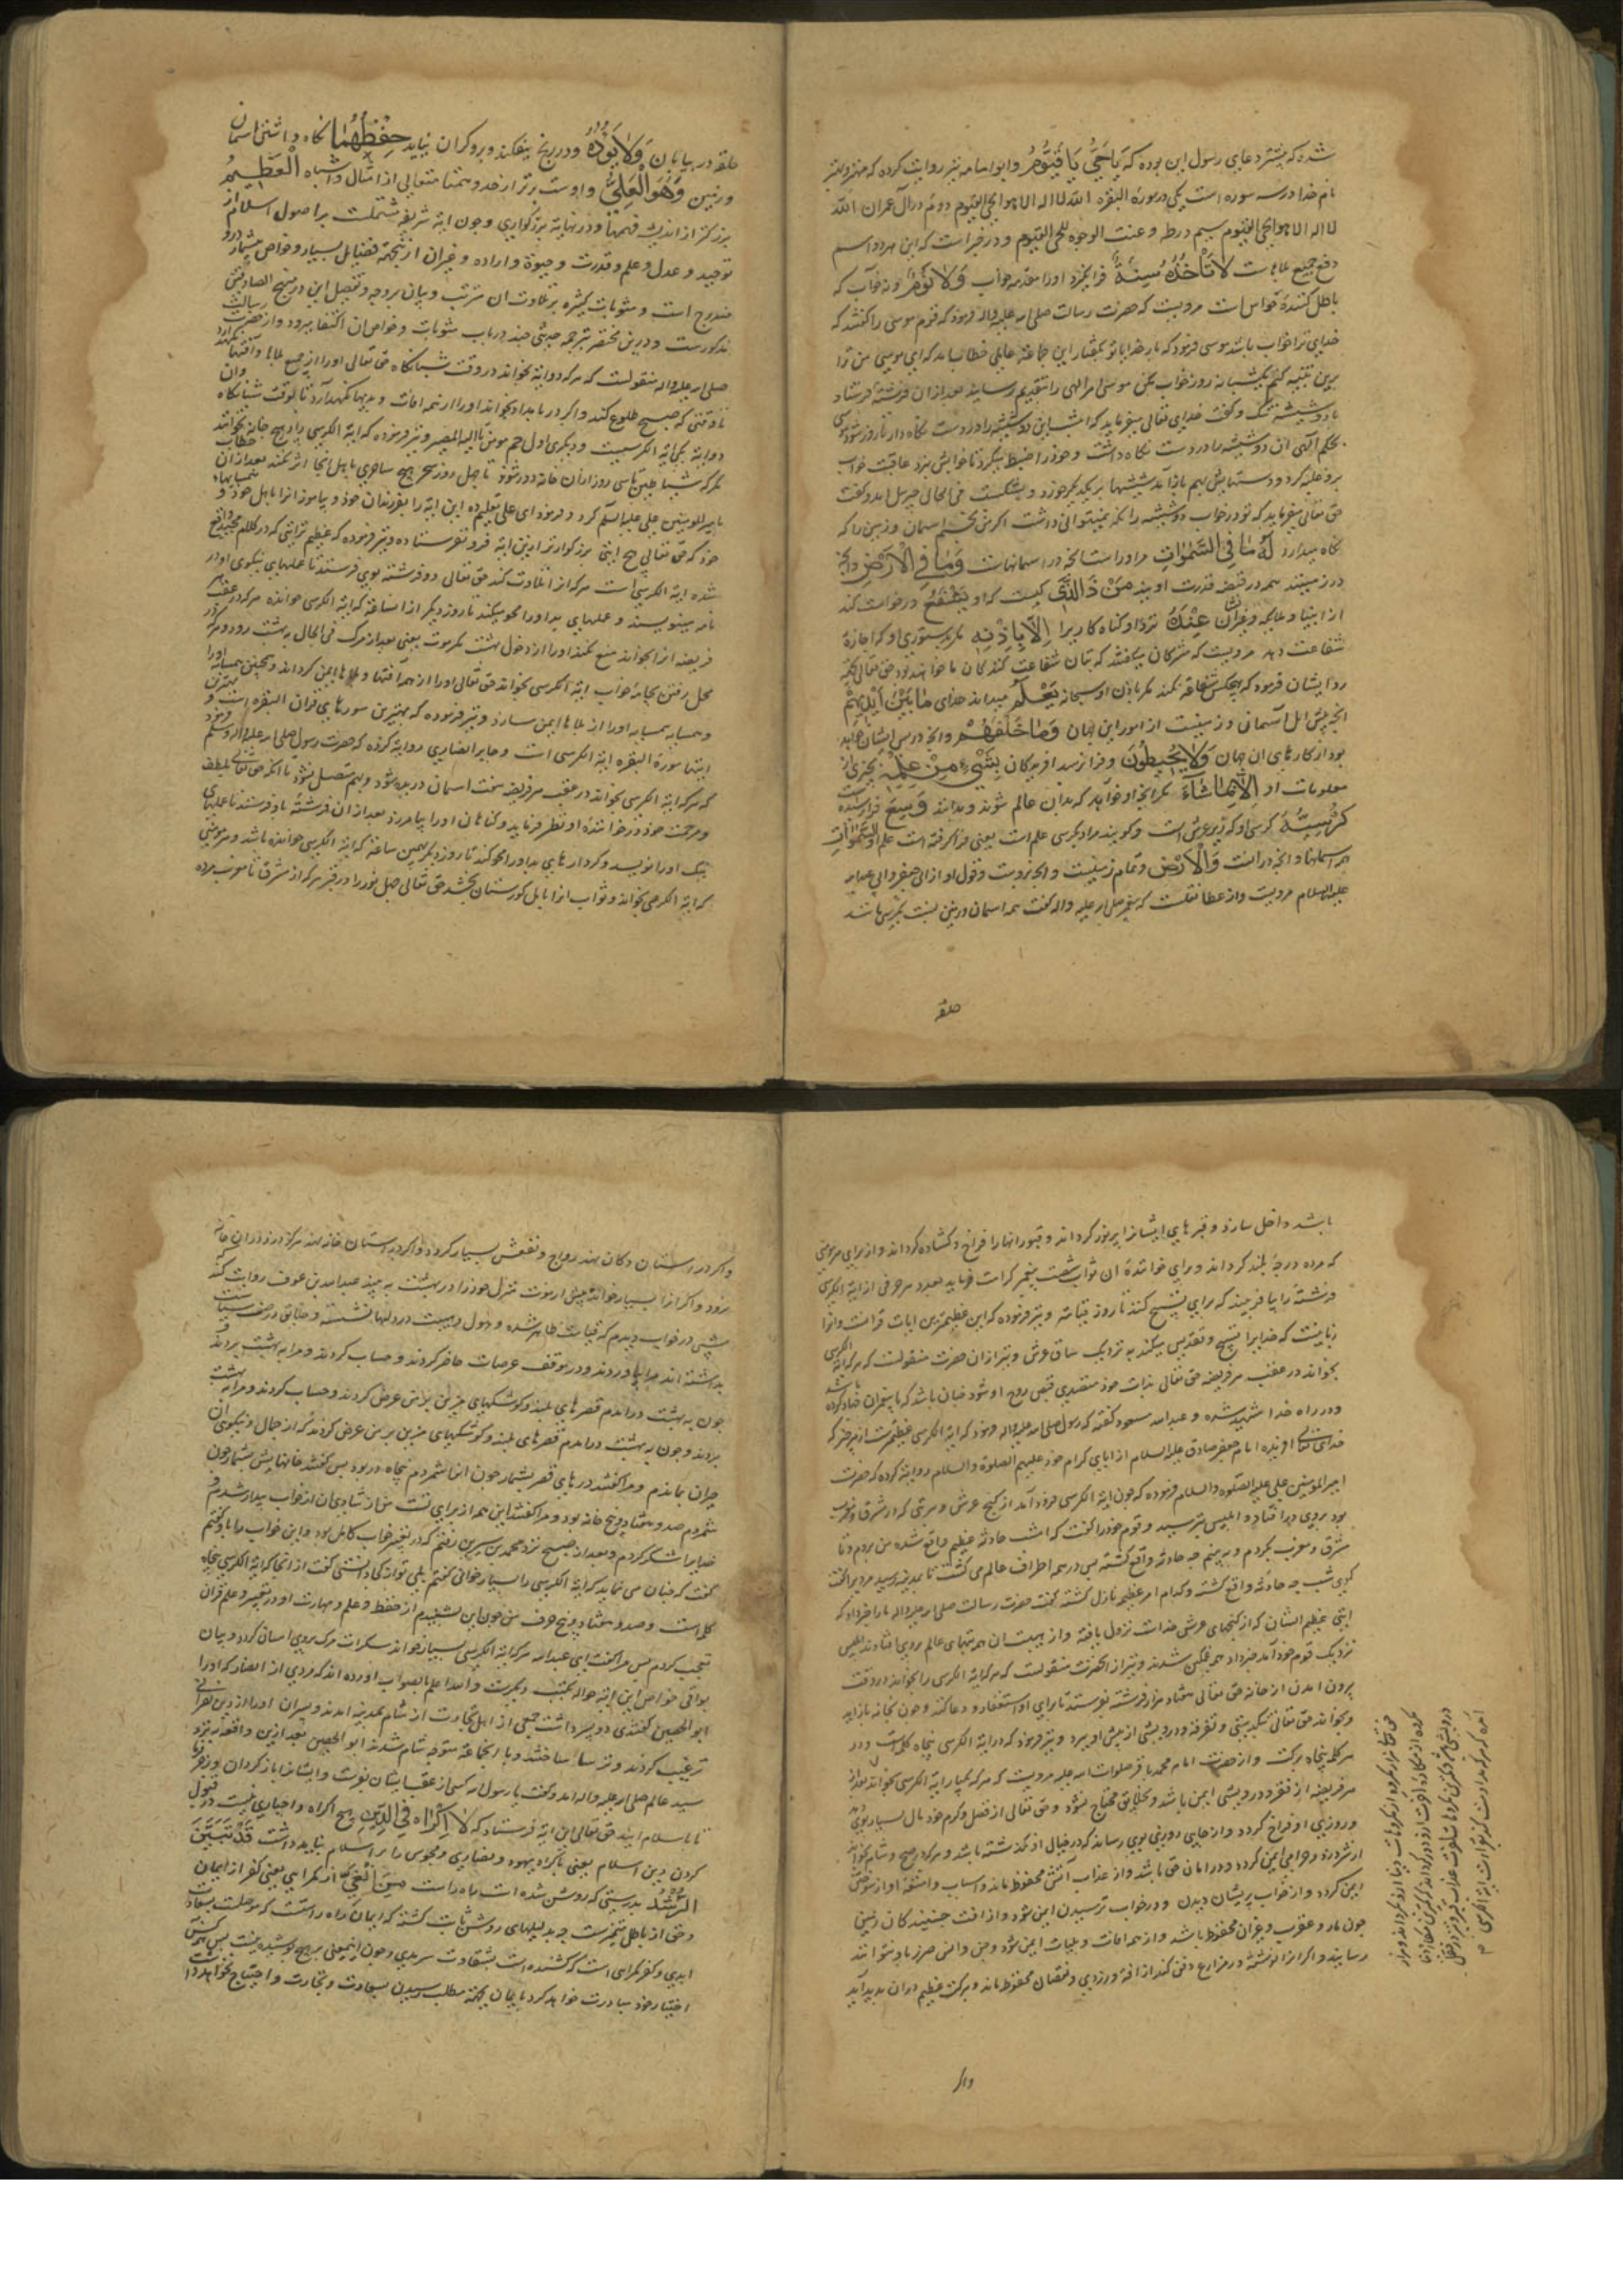 شده که بیشتر دعای رسول این بوده که یَا حَیُّ یَا قَیُّومُ وابو امامه نیز روایت کرده که
نام خدا در سه سوره است یکی در سورة البقره الله لا اله الا هو الحی القیوم دوم در آل عمران الله
لا اله الا هو الحی القیوم سیم در طه و عنت الوجوه للحی القیوم و در خبر است که این هر دو اسم
دفع جمیع بلاهاست لَا تَأْخُذُهُ سِنَةٌ فرا نگیرد او را مقدمه خواب وَلَا نَوْمٌ و نه خواب که
باطل کنندهٔ حواس است مرویست که حضرت رسالت صلی الله علیه واله فرمود که قوم موسی را گفتند که
خدای ترا خواب باشد موسی فرمود که بار خدایا تو بگفتار این جماعة عالمی خطاب آمد که ای موسی من ترا
برین تنبیه کنم یکشبانه روز خواب مکن موسی امر الهی را بتقدیم رسانید بعد ازان فرشتهٔ فرستاد
با دو شیشه تنگ و گفت خدای تعالی میفرماید که امشب این دو شیشه را در دست نگاه دار تا روز شود موسی
بحکم الهی آن دو شیشه را در دست نگاه داشت و خود را ضبط میکرد تا خوابش نبرد عاقبت خواب
برو غلبه کرد و دستهایش بهم باز آمد شیشها بر یکدیگر خورد و بشکست فی الحال جبرئیل آمد و گفت
حق تعالی میفرماید که تو در خواب دو شیشه را نگه نمیتوانی داشت اگر من بخسبم آسمان و زمین را که
نگاه میدارد لَهُ مَا فِی السَّمٰوَاتِ مر اوراست آنچه در آسمانهاست وَمَا فِی الْاَرْضِ وآنچه
در زمینند همه در قبضه قدرت اویند مَنْ ذَا الَّذِی کیست که او یَشْفَعُ درخواست کند
از انبیا و ملائکه و غیران عِنْدَهُ نزد او گناه کاریرا اِلَّا بِاِذْنِهِ مگر بدستوری او که اجازة
شفاعت دهد مرویست که مشرکان میگفتند که بتان شفاعت کنندگان ما خواهند بود حق تعالی
رد ایشان فرمود که هیچکس شفاعة نکند مگر باذن او سبحانه یَعْلَمُ میداند خدای مَا بَیْنَ اَیْدِیهِمْ
آنچه پیش اهل آسمان و زمینست از امور این جهان وَمَا خَلْفَهُمْ و آنچه در پس ایشان خواهد
بود از کارهای آن جهان وَلَا یُحِیطُونَ و فرا نرسند افریدگان بِشَیْءٍ مِنْ عِلْمِهِ بچیزی از
معلومات او اِلَّا بِمَا شَاءَ مگر آنچه او خواهد که بدان عالم شوند و بدانند وَسِعَ فرا رسیده است
کُرْسِیُّهُ کرسی او که زیر عرش است و گویند مراد بکرسی علم است یعنی فرا گرفته است علم او السَّمٰوَاتِ
همه آسمانها و آنچه در آنست وَالْاَرْضَ و تمام زمینست و آنچه دروست و قول او از ابی جعفر و ابی عبدالله
علیه السلام مرویست و از عطا نقلست که پیغمبر صلی الله علیه واله گفت همه آسمان و زمین بنسبت بکرسی باشد
حلقه
حلقه در بیابان وَلَا یَؤُدُهُ و در رنج نیفکند و برو گران نیاید حِفْظُهُمَا نگاه داشتن آسمان
و زمین وَهُوَ الْعَلِیُّ و اوست برتر از ضد و همتا متعالی از امثال و اشباه الْعَظِیمُ
بزرگتر از اندیشه فهمها و در نهایة بزرگواری و چون ایة شریفه مشتملست بر اصول اسلام از
توحید و عدل و علم و قدرت و حیوة و اراده و غیران از نیجهة فضایل بسیار و خواص بیشمار درو
مندرج است و مثوبات کثیره بر تلاوت ان مترتب و بیان بر وجه و تفصیل این در منهج الصادقین
مذکورست و درین مختصر بترجمه حدیثی چند در باب مثوبات و خواص ان اکتفا میرود و از حضرت رسالت
صلی الله علیه واله منقولست که هر که دو ایة بخواند در وقت شبانگاه حق تعالی او را از جمیع بلاها و آفتها نگهدارد
تا وقتی که صبح طلوع کند و اگر در بامداد بخواند او را از همه افات و بدیها نگهدارد تا بوقت شبانگاه وان
دو ایة یکی ایة الکرسیست و دیگری اول حم مومن تا الیه المصیر و نیز فرموده که ایة الکرسی را در هیچ خانه نخوانند
مگر که شیاطین تا سی روز از ان خانه دور شوند تا چهل روز سحر هیچ ساحری باهل انجا اثر نکند بعد ازان خطاب
بامیر المومنین علی علیه السلام کرد و فرمود ای علی تعلیم ده این ایة را بفرزندان خود و بیاموز انرا باهل خود و همسایهاء
خود که حق تعالی هیچ ایتی بزرگوارتر ازین ایة فرو نفرستاده و نیز فرموده که عظیم ترایتی که در کلام مجید واقع
شده ایة الکرسی است هر که از اتلاوت کند حق تعالی دو فرشته بوی فرستد تا عملهای نیکوی او در
نامه بنویسند و عملهای بد او را محو میکنند تا روز دیگر از آن ساعة که ایة الکرسی خوانده هر که در عقب هر
فریضه انرا بخواند منع نکند او را از دخول بهشت مگر موت یعنی بعد از مرگ فی الحال به بهشت رود و هر که در
محل رفتن بجامهٔ خواب ایة الکرسی بخواند حق تعالی او را از همه آفتها و بلاها ایمن گرداند و همچنین همسایه او را
و همسایه همسایه او را از بلاها ایمن سازد و نیز فرموده که بهترین سورهای قران البقره است و بهترین
ایتها سورة البقره ایة الکرسی است و جابر انصاری روایة کرده که حضرت رسول صلی الله علیه واله وسلم فرمود
که هر که ایة الکرسی بخواند در عقب هر فریضه هفت آسمان دریده شود و بهم متصل نشود تا آنکه حق تعالی بلطف
و مرحمت خود در خوانندهٔ او نظر فرماید و گناهان او را بیامرزد بعد ازان فرشتهٔ باو فرستد تا عملهای
نیک او را نویسد و کردارهای بد او را محو کند تا روز دیگر بهمین ساعة که ایة الکرسی خوانده باشد و هر مومنی
که ایة الکرسی بخواند و ثواب انرا باهل گورستان بخشد حق تعالی چهل نور را در قبر هر که از مشرق تا مغرب مرده
باشد داخل سازد و قبرهای ایشانرا پرنور گرداند و قبور انها را فراخ و گشاده گرداند و از برای هر مومنی
که مرده درجهٔ بلند گرداند و برای خوانندهٔ ان ثواب شصت پیغمبر کرامت فرماید بعدد هر حرفی از ایة الکرسی
فرشتهٔ را بیافریند که برای تسبیح کند تا روز قیامة و نیز فرموده که این عظیمترین ایات قرانست و انرا
زبانیست که خدایرا تسبیح و تقدیس میکند به نزدیک ساق عرش و نیز ازان حضرت منقولست که هر که ایة الکرسی
بخواند در عقب هر فریضه حق تعالی بذات خود متصدی قبض روح او شود چنان باشد که با پیغمبران جهاد کرده باشد
و در راه خدا شهید شده و عبدالله مسعود گفته که رسول صلی الله علیه واله فرمود که ایة الکرسی عظیمترست از هر چیز که
خدای تعالی افریده امام جعفر صادق علیه السلام از ابای کرام خود علیهم الصلوة والسلام روایة کرده که حضرت
امیر المومنین علی علیه الصلوة والسلام فرموده که چون ایة الکرسی فرود آمد از گنج عرش هر بتی که از مشرق و مغرب
بود بروی در افتاد و ابلیس بترسید و قوم خود را گفت که امشب حادثهٔ عظیم واقع شده من بروم و تا
مشرق و مغرب بگردم و ببینم چه حادثه واقع گشته پس در همه اطراف عالم می گشت تا بمدینه رسید مردیرا گفت
که دی شب چه حادثه واقع گشته و کدام امر عظیم نازل گشته گفت حضرت رسالت صلی الله علیه واله ما را خبر داد که
ایتی عظیم الشان که از گنجهای عرش خداست نزول یافته و از هیبت ان همه بتهای عالم بروی افتادند ابلیس
نزدیک قوم خود آمد خبر داد همه غمگین شدند و نیز از انحضرت منقولست که هر که ایة الکرسی را بخواند در وقت
بیرون امدن از خانه حق تعالی هفتاد هزار فرشته بفرستد تا برای او استغفار و دعا کنند و چون بخانه باز اید
و بخواند حق تعالی تنگدستی و تفرقه و درویشی از پیش او ببرد و نیز فرمود که در ایة الکرسی پنجاه کلمه است و در
هر کلمه پنجاه برکت و از حضرت امام محمد باقر صلوات الله علیه مرویست که هر که یکبار ایة الکرسی بخواند بعد از
هر فریضه از فقر و درویشی ایمن باشد و بخلایق محتاج نشود و حق تعالی از فضل و کرم خود مال بسیار بوی دهد
و روزی او فراخ گردد و از جایی روزی بوی رساند که در خیال او نگذشته باشد و هر که در صبح و شام بخواند
از شر دزد و حرامی ایمن گردد و در امان حق باشد و از عذاب آتش محفوظ ماند و اسباب و امتعهٔ او از سوختن
ایمن گردد و از خواب پریشان دیدن و در خواب ترسیدن ایمن شود و از افت جنبندگان زمین
چون مار و عقرب و غیران محفوظ باشد و از همه افات و بلیات ایمن شود و جن و انس ضرر باو نتوانند
رسانید و اگر انرا نوشته در مزارع دفن کنند از افة و دزدی و نقصان محفوظ ماند و برکت عظیم دران پدید آید
واگر
واگر در راستان دکان نهند رواج و نفعش بسیار گردد و اگر در استان خانه نهند هرگز دزد دران خانه
نرود و اگر انرا بسیار خواند پیش از موت منزل خود را در بهشت به بیند عبدالله بن عوف روایت کند که
شبی در خواب دیدم که قیامت ظاهر شده و هول و هیبت در دلها نشسته و خلایق در صف سیاست
بداشته اند مرا بیاوردند و در موقف عرصات حاضر کردند و حساب کردند و مرا به بهشت بردند و
چون به بهشت درامدم قصرهای بلند و کوشکهای مزین بر من عرض کردند و حساب کردند و مرا به بهشت
بردند و چون به بهشت درامدم قصرهای بلند و کوشکهای مزین بر من عرض کردند که از جمال و نیکوی ان
حیران بماندم و مرا گفتند درهای قصر بشمار چون انها شمردم پنجاه در بود پس گفتند خانهایش بشمار چون
شمردم صد و هفتاد و پنج خانه بود و مرا گفتند این همه از برای تست من از شادی ان از خواب بیدار شدم و
خدایرا شکر کردم و بعد از صبح نزد محمد بن سیرین رفتم که در تعبیر خواب کامل بود و این خواب را باو گفتم
گفت که چنان می نماید که ایة الکرسی را بسیار خوانی گفتم بلی تو از کجا دانستی گفت از انجا که ایة الکرسی پنجاه
کلمه است و صد و هفتاد و پنج حرف من چون این بشنیدم از حفظ و علم و مهارت او در تعبیر و علم قران
تعجب کردم پس مرا گفت ای عبدالله هر که ایة الکرسی بسیار خواند سکرات مرگ بروی اسان گردد و بیان
بواقی خواص این ایة حواله بکتب دیگرست والله اعلم بالصواب اورده اند که مردی از انصار که او را
ابوالحصین گفتندی دو پسر داشت جمعی از اهل تجارت از شام بمدینه امدند و پسران او را از دین نصرانی
ترغیب کردند و ترسا ساختند و با انجماعة متوجه شام شدند ابوالحصین بعد ازین واقعه نزد
سید عالم صلی الله علیه واله امد و گفت یا رسول الله کس از عقب ایشان بفرست و ایشانرا باز گردان و زجر فرما
تا باسلام ایند حق تعالی این ایة فرستاد که لَا اِکْرَاهَ فِی الدِّینِ هیچ اکراه و اجباری نیست در قبول
کردن دین اسلام یعنی باکراه یهود و نصاری و مجوس را بر اسلام نباید داشت قَدْ تَبَیَّنَ
الرُّشْدُ بدرستی که روشن شده است راه راست مِنَ الْغَیِّ از گمراهی یعنی کفر از ایمان
و حق از باطل متمیزست و بدلیلهای روشن ثابت گشته که ایمان راه راستست که موصلست بسعادت
ابدی و کفر گمراهی است که کشنده است بشقاوت سرمدی و چون اینمعنی بر هیچ پوشیده نیست پس
اختیار خود مبادرت خواهد کرد بایمان بجهة مطلب رسیدن بسعادت و نجات و احتیاج نخواهد داشت